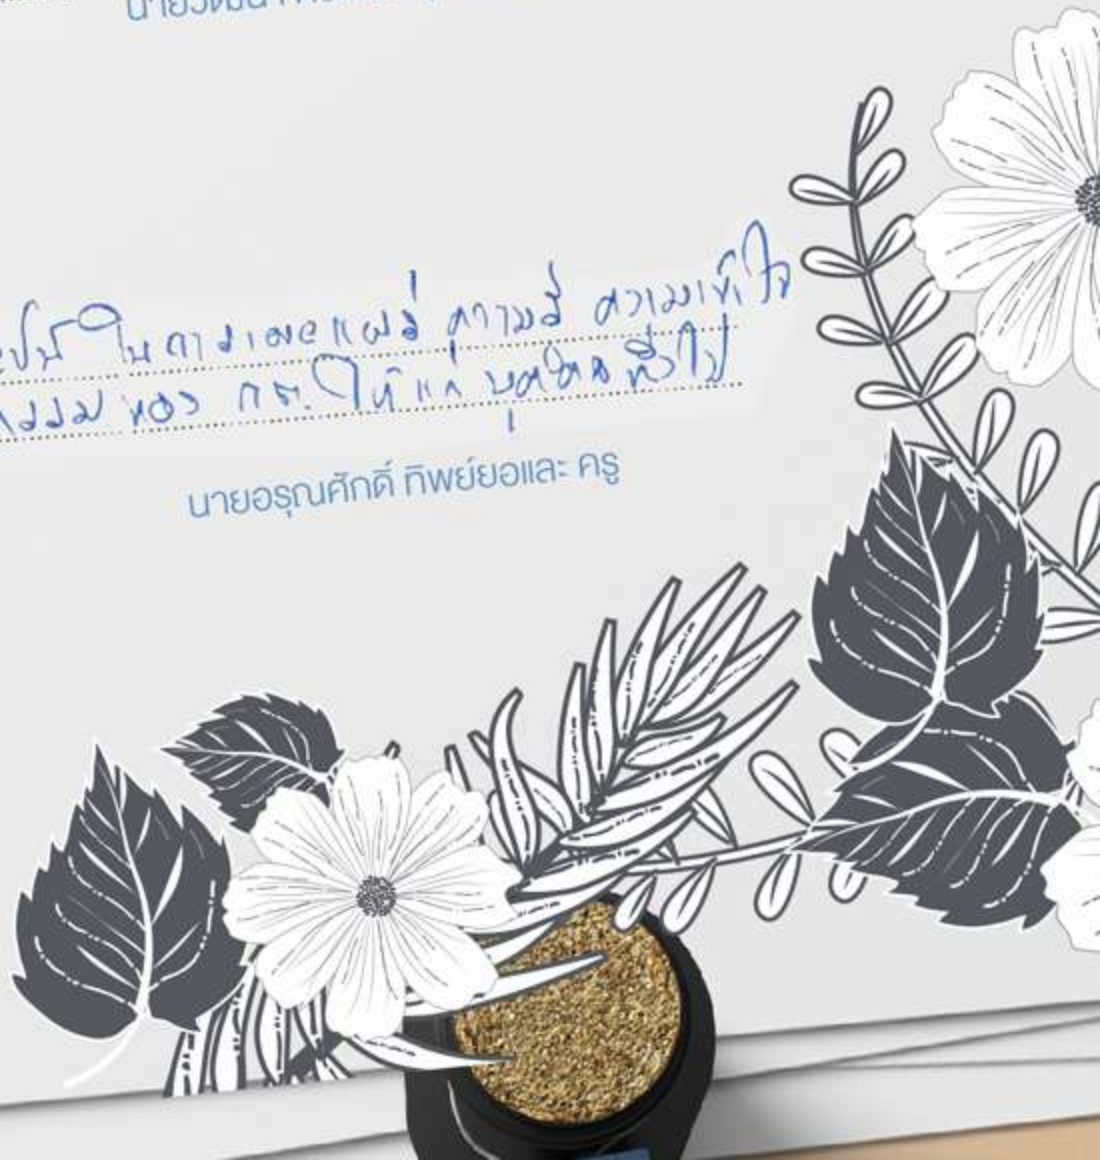 ในการเผยแผ่ ความรู้ ความเข้าใจ
ของ กธ. ให้แก่ บุคคลทั่วไป
นายอรุณศักดิ์ ทิพย์ยอและ ครู